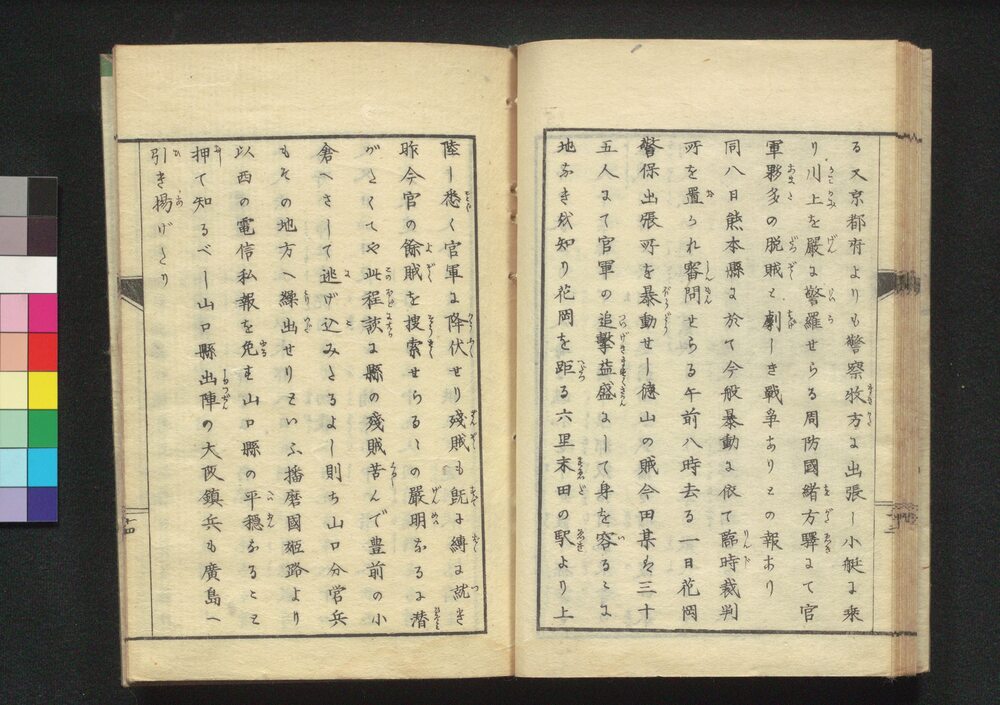 る又京都府よりも警察牧方に出張し小艇に乗
り川上を嚴に警羅せらる周防國緒方驛にて官
軍夥多の脱賊と劇しき戰争ありとの報あり
同八日熊本縣に於て今般暴動に依て臨時裁判
所を置られ審問せらる午前八時去る一日花岡
警保出張所を暴動せし徳山の賊今田某は三十
五人にて官軍の追撃益盛にして身を容るゝに
地なきを知り花岡を距る六里末田の駅より上
陸し悉く官軍に降伏せり殘賊も既に縛に就き
昨今官の餘賊を捜索せらるゝの嚴明なるに潜
がたくてや此程談に縣の殘賊苦んで豊前の小
倉へさして逃げ込みたるよし則ち山口分営兵
もその地方へ繰出せりといふ播磨國姫路より
以西の電信私報を免す山口縣の平穏なること
押て知るべし山口縣出陣の大阪鎮兵も廣島へ
引き揚げたり